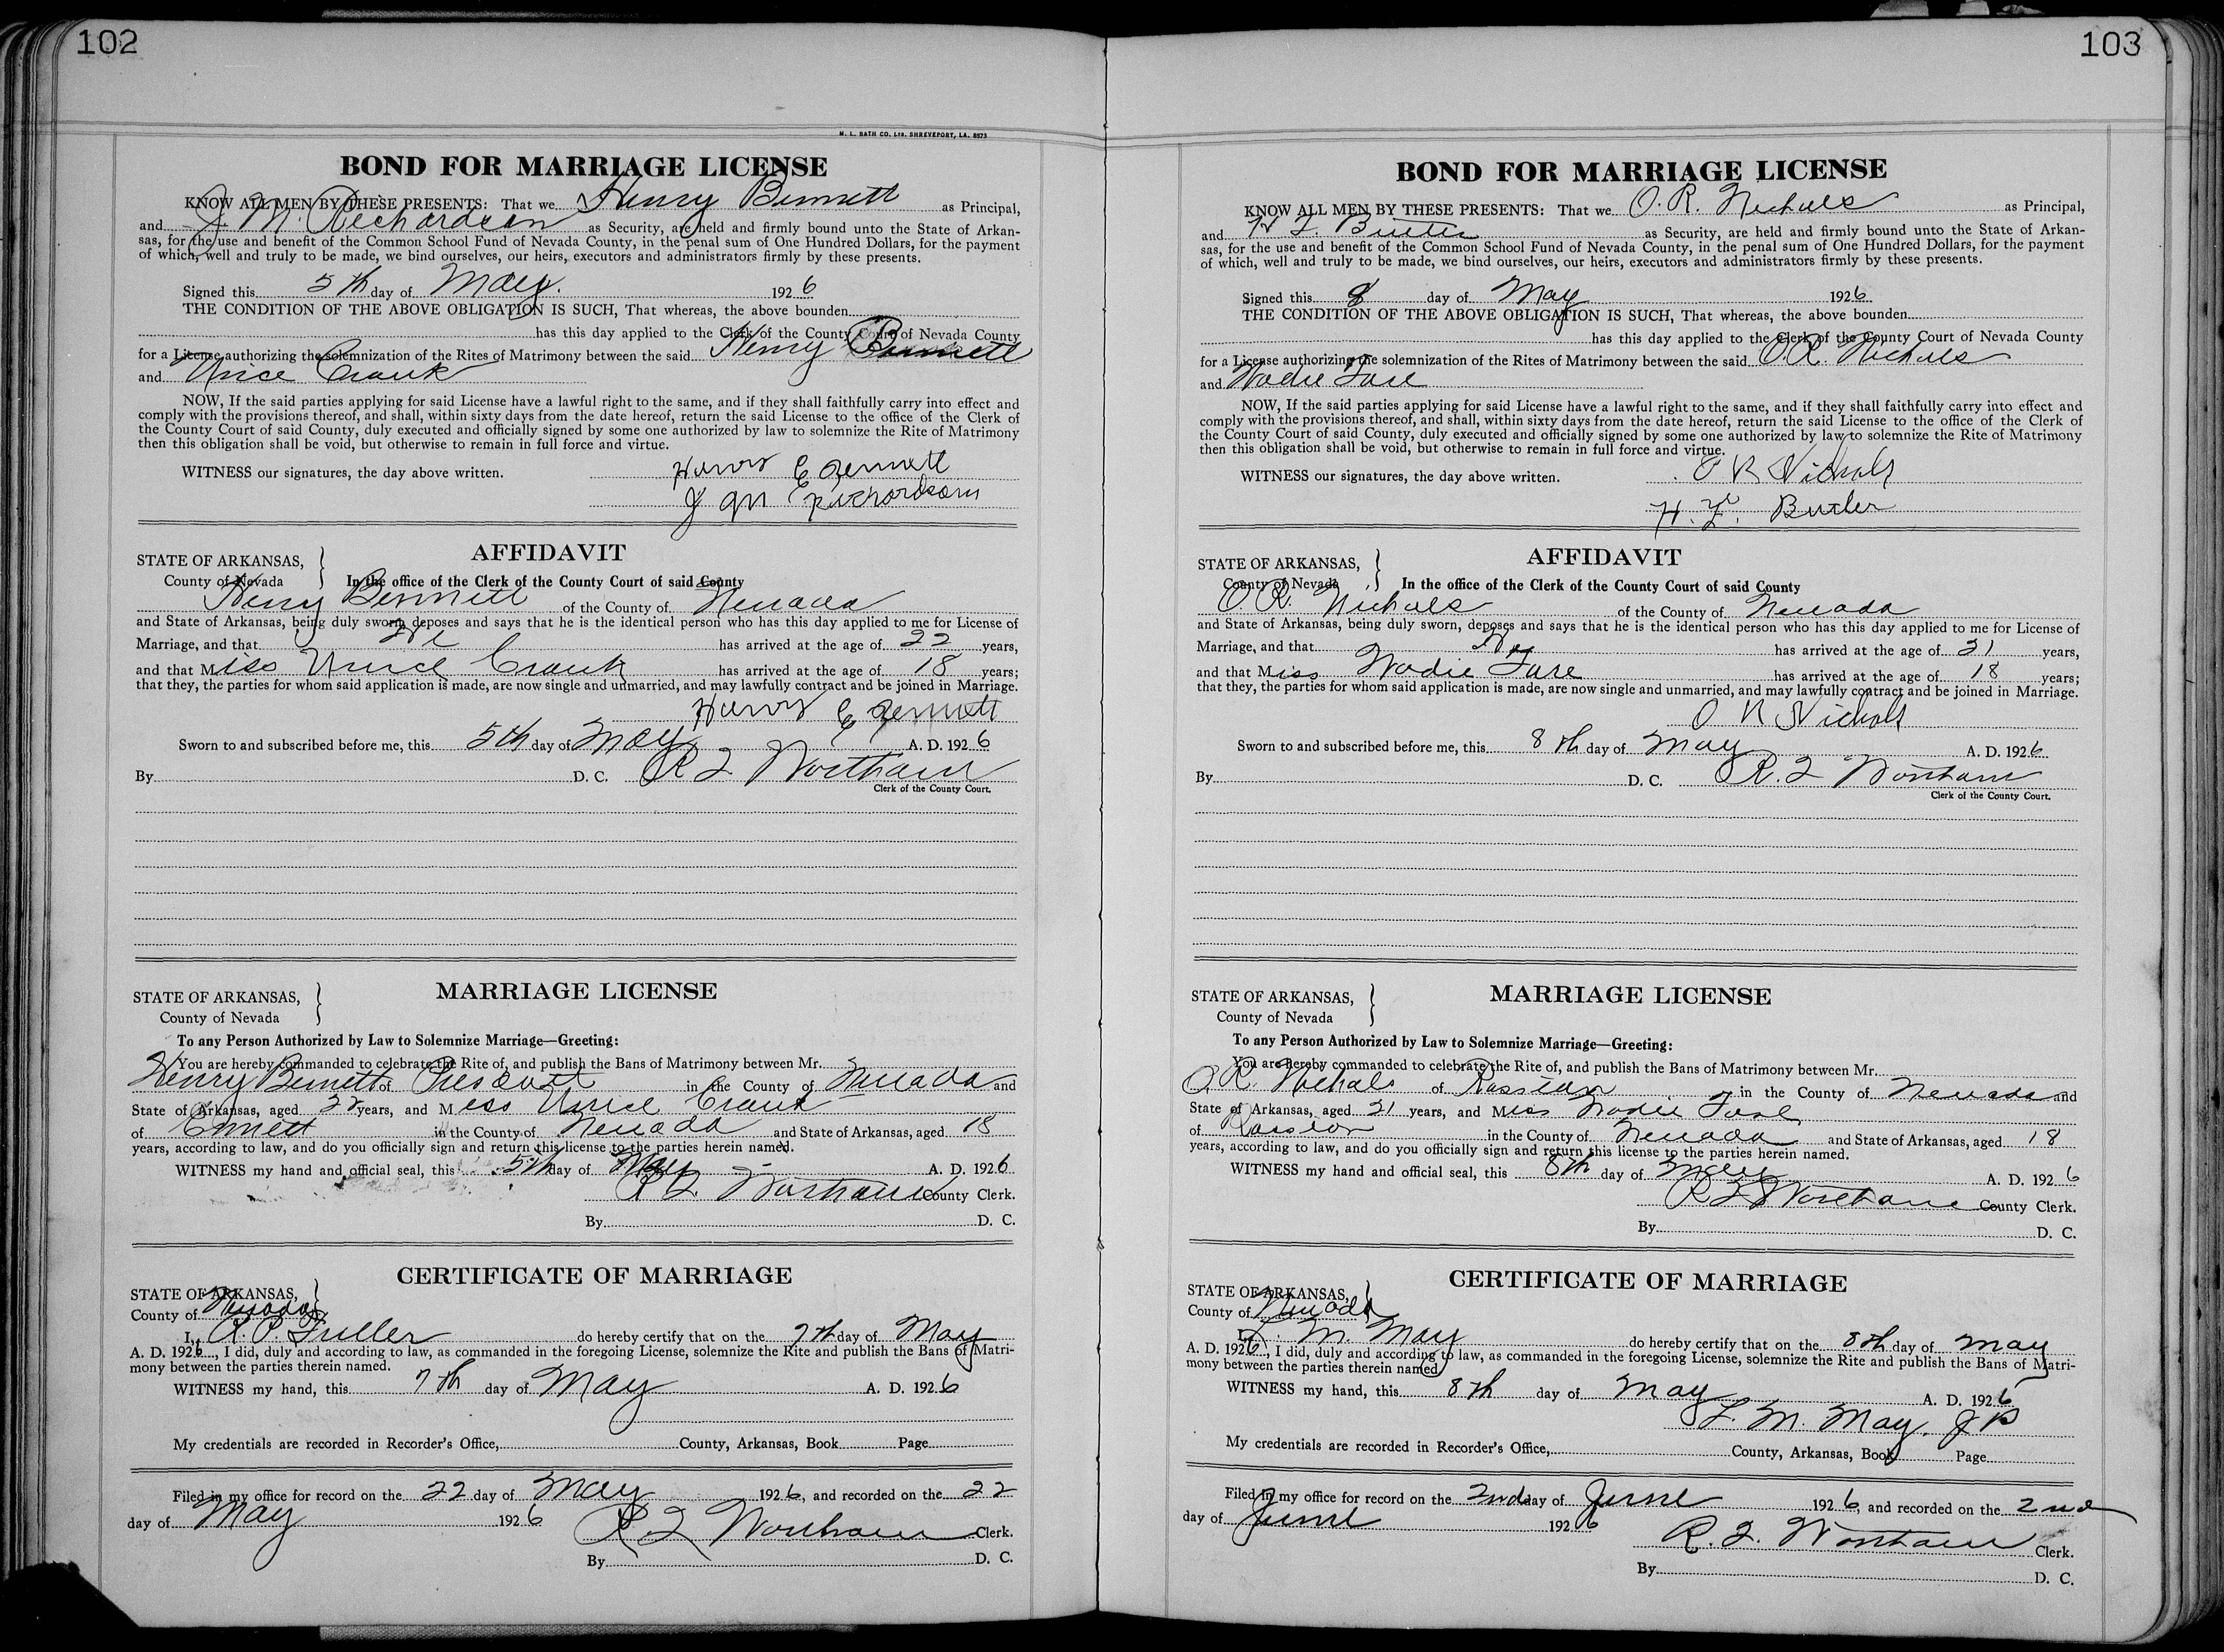 102
M. L. BATH CO. LTD. SHREVEPORT, LA. 8573
BOND FOR MARRIAGE LICENSE
KNOW ALL MEN BY THESE PRESENTS: That we Henry Bennett as Principal,
and J M. Richardson as Security, are held and firmly bound unto the State of Arkan-
sas, for the use and benefit of the Common School Fund of Nevada County, in the penal sum of One Hundred Dollars, for the payment
of which, well and truly to be made, we bind ourselves, our heirs, executors and administrators firmly by these presents.
Signed this 5th day of May. 1926
THE CONDITION OF THE ABOVE OBLIGATION IS SUCH, That whereas, the above bounden
has this day applied to the Clerk of the County Court of Nevada County
for a License authorizing the solemnization of the Rites of Matrimony between the said Henry Bennett
and Unice Crank
NOW, If the said parties applying for said License have a lawful right to the same, and if they shall faithfully carry into effect and
comply with the provisions thereof, and shall, within sixty days from the date hereof, return the said License to the office of the Clerk of
the County Court of said County, duly executed and officially signed by some one authorized by law to solemnize the Rite of Matrimony
then this obligation shall be void, but otherwise to remain in full force and virtue.
WITNESS our signatures, the day above written. Henry Bennett
J M Richardson
AFFIDAVIT
STATE OF ARKANSAS,
County of Nevada In the office of the Clerk of the County Court of said County
Henry Bennett of the County of Nevada
and State of Arkansas, being duly sworn, deposes and says that he is the identical person who has this day applied to me for License of
Marriage, and that He has arrived at the age of 22 years,
and that Miss Unice Crank has arrived at the age of 18 years;
that they, the parties for whom said application is made, are now single and unmarried, and may lawfully contract and be joined in Marriage.
Henry Bennett
Sworn to and subscribed before me, this 5th day of May A. D. 1926
By D. C. R L Wortham
Clerk of the County Court.
MARRIAGE LICENSE
STATE OF ARKANSAS,
County of Nevada
To any Person Authorized by Law to Solemnize Marriage—Greeting:
You are hereby commanded to celebrate the Rite of, and publish the Bans of Matrimony between Mr.
Henry Bennett of Prescott in the County of Nevada and
State of Arkansas, aged 22 years, and Miss Unice Crank
of Emmett in the County of Nevada and State of Arkansas, aged 18
years, according to law, and do you officially sign and return this license to the parties herein named.
WITNESS my hand and official seal, this 5th day of May A. D. 1926
R L Wortham County Clerk.
By D. C.
CERTIFICATE OF MARRIAGE
STATE OF ARKANSAS,
County of Nevada
I, A. P. Fuller do hereby certify that on the 7th day of May
A. D. 1926, I did, duly and according to law, as commanded in the foregoing License, solemnize the Rite and publish the Bans of Matri-
mony between the parties therein named.
WITNESS my hand, this 7th day of May A. D. 1926
My credentials are recorded in Recorder's Office, County, Arkansas, Book Page
Filed in my office for record on the 22 day of May 1926, and recorded on the 22
day of May 1926 R L Wortham Clerk.
By D. C.
103
BOND FOR MARRIAGE LICENSE
KNOW ALL MEN BY THESE PRESENTS: That we O. R. Nichols as Principal,
and H L. Butler as Security, are held and firmly bound unto the State of Arkan-
sas, for the use and benefit of the Common School Fund of Nevada County, in the penal sum of One Hundred Dollars, for the payment
of which, well and truly to be made, we bind ourselves, our heirs, executors and administrators firmly by these presents.
Signed this 8 day of May 1926
THE CONDITION OF THE ABOVE OBLIGATION IS SUCH, That whereas, the above bounden
has this day applied to the Clerk of the County Court of Nevada County
for a License authorizing the solemnization of the Rites of Matrimony between the said O. R. Nichols
and
NOW, If the said parties applying for said License have a lawful right to the same, and if they shall faithfully carry into effect and
comply with the provisions thereof, and shall, within sixty days from the date hereof, return the said License to the office of the Clerk of
the County Court of said County, duly executed and officially signed by some one authorized by law to solemnize the Rite of Matrimony
then this obligation shall be void, but otherwise to remain in full force and virtue.
WITNESS our signatures, the day above written. O R Nichols
H. L. Butler
AFFIDAVIT
STATE OF ARKANSAS,
County of Nevada In the office of the Clerk of the County Court of said County
O R. Nichols of the County of Nevada
and State of Arkansas, being duly sworn, deposes and says that he is the identical person who has this day applied to me for License of
Marriage, and that He has arrived at the age of 21 years,
and that Miss has arrived at the age of 18 years;
that they, the parties for whom said application is made, are now single and unmarried, and may lawfully contract and be joined in Marriage.
O R Nichols
Sworn to and subscribed before me, this 8th day of May A. D. 1926
By D. C. R. L Wortham
Clerk of the County Court.
MARRIAGE LICENSE
STATE OF ARKANSAS,
County of Nevada
To any Person Authorized by Law to Solemnize Marriage—Greeting:
You are hereby commanded to celebrate the Rite of, and publish the Bans of Matrimony between Mr.
O R. Nichols of Rosston in the County of Nevada and
State of Arkansas, aged 21 years, and Miss
of Rosston in the County of Nevada and State of Arkansas, aged 18
years, according to law, and do you officially sign and return this license to the parties herein named.
WITNESS my hand and official seal, this 8th day of May A. D. 1926
R L Wortham County Clerk.
By D. C.
CERTIFICATE OF MARRIAGE
STATE OF ARKANSAS,
County of Nevada
I, L. M. May do hereby certify that on the 8th day of May
A. D. 1926, I did, duly and according to law, as commanded in the foregoing License, solemnize the Rite and publish the Bans of Matri-
mony between the parties therein named.
WITNESS my hand, this 8th day of May A. D. 1926
L. M. May. J P
My credentials are recorded in Recorder's Office, County, Arkansas, Book Page
Filed in my office for record on the 2nd day of June 1926, and recorded on the 2nd
day of June 1926 R. L. Wortham Clerk.
By D. C.